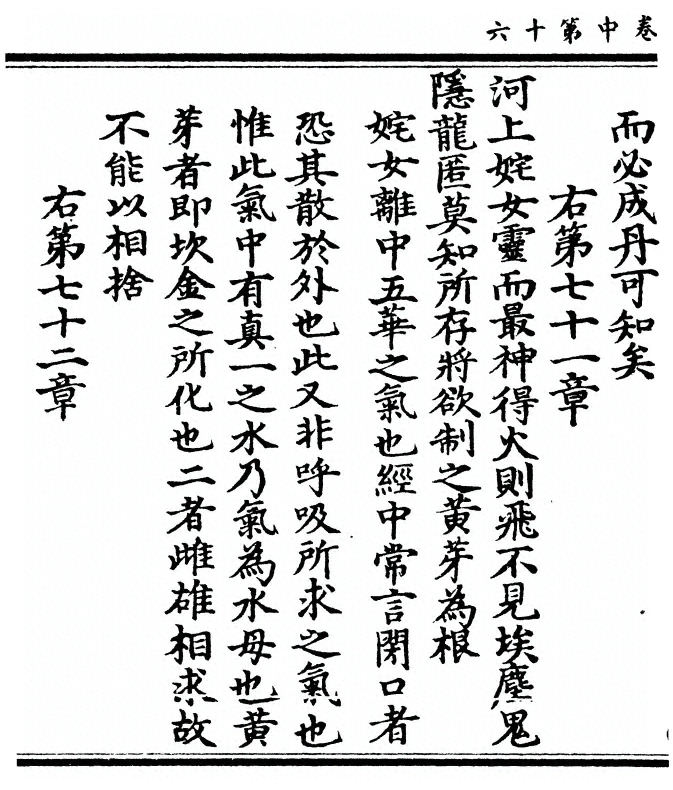 卷中第十六
而必成丹可知矣
右第七十一章
河上姹女靈而最神得火則飛不見埃塵鬼
隱龍匿莫知所存將欲制之黃芽為根
姹女離中五華之氣也經中常言閉口者
恐其散於外也此又非呼吸所求之氣也
惟此氣中有真一之水乃氣為水母也黃
芽者即坎金之所化也二者雌雄相求故
不能以相捨
右第七十二章